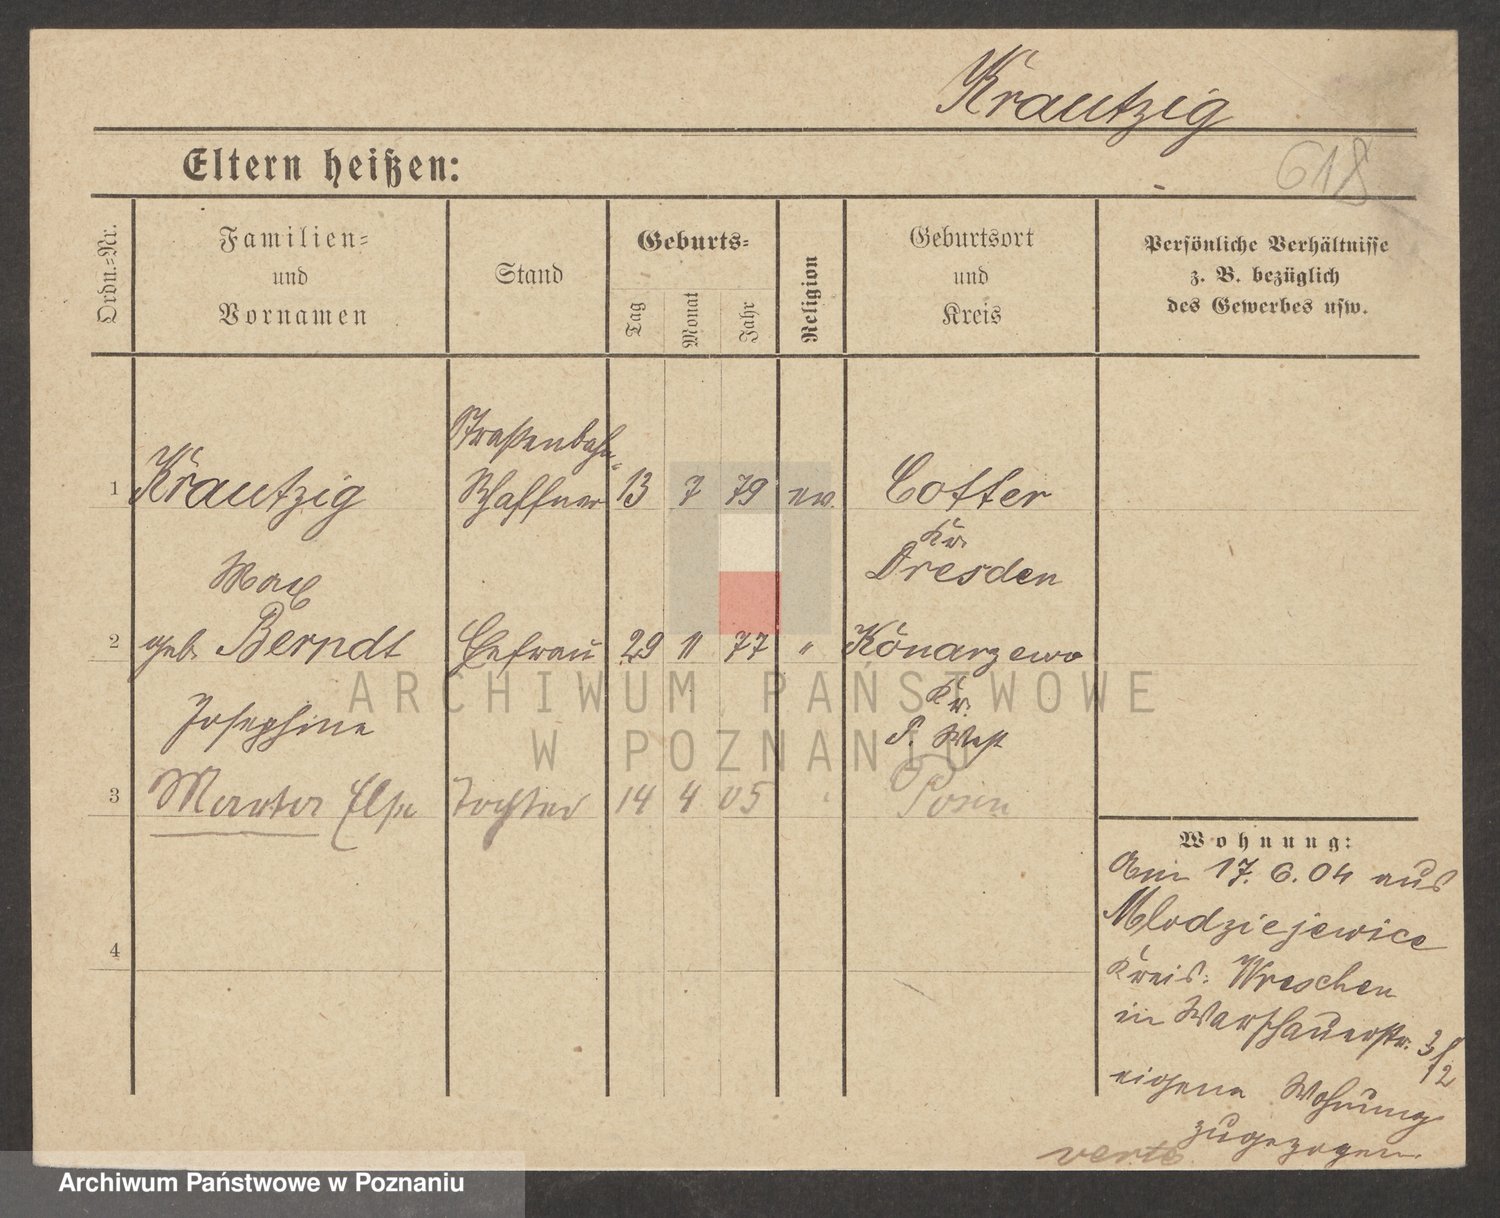 Krautzig
618
Eltern heißen:
Ordn.-Nr.
Familien-
und
Vornamen
Stand
Geburts-
Tag
Monat
Jahr
Religion
Geburtsort
und
Kreis
Persönliche Verhältnisse
z. B. bezüglich
des Gewerbes usw.
Straßenbahn-
1 Krautzig Schaffner 13 7 79 ev. Cotter
Kr.
Max Dresden
2 geb. Berndt Ehefrau 29 11 77 " Konarzewo
Kr.
Josephine P. West
3 Marta Else Tochter 14 4 05 " Posen
4
Wohnung:
Am 17. 6. 04 aus
Mlodziejewice
Kreis: Wreschen
in Warschauerstr. 3/
12
eigene Wohnung
zugezogen.
verte
ARCHIWUM PAŃSTWOWE
W POZNANIU
Archiwum Państwowe w Poznaniu